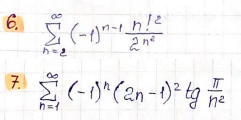 6. \sum_{n=2}^{\infty} (-1)^{n-1} \frac{n!^2}{2^{n^2}}
7. \sum_{n=1}^{\infty} (-1)^n (2n-1)^2 tg \frac{\pi}{n^2}